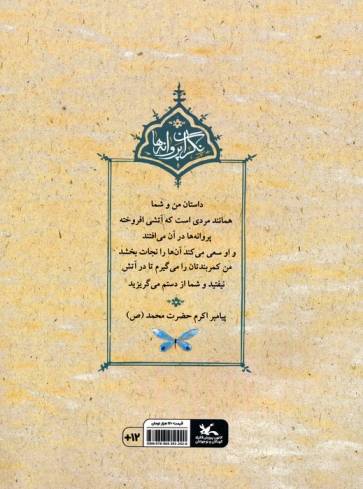 نگران پروانه‌ها
داستان من و شما
همانند مردی است که آتشی افروخته
پروانه‌ها در آن می‌افتند
و او سعی می‌کند آن‌ها را نجات بخشد
من کمربندتان را می‌گیرم تا در آتش
نیفتید و شما از دستم می‌گریزید
پیامبر اکرم حضرت محمد (ص)
+۱۲
کانون پرورش فکری
کودکان و نوجوانان